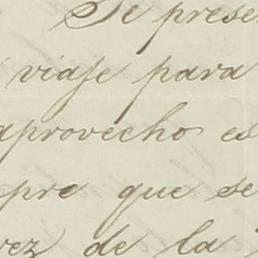 Se prese
viaje para
aprovecho es
pre que se
vez de la